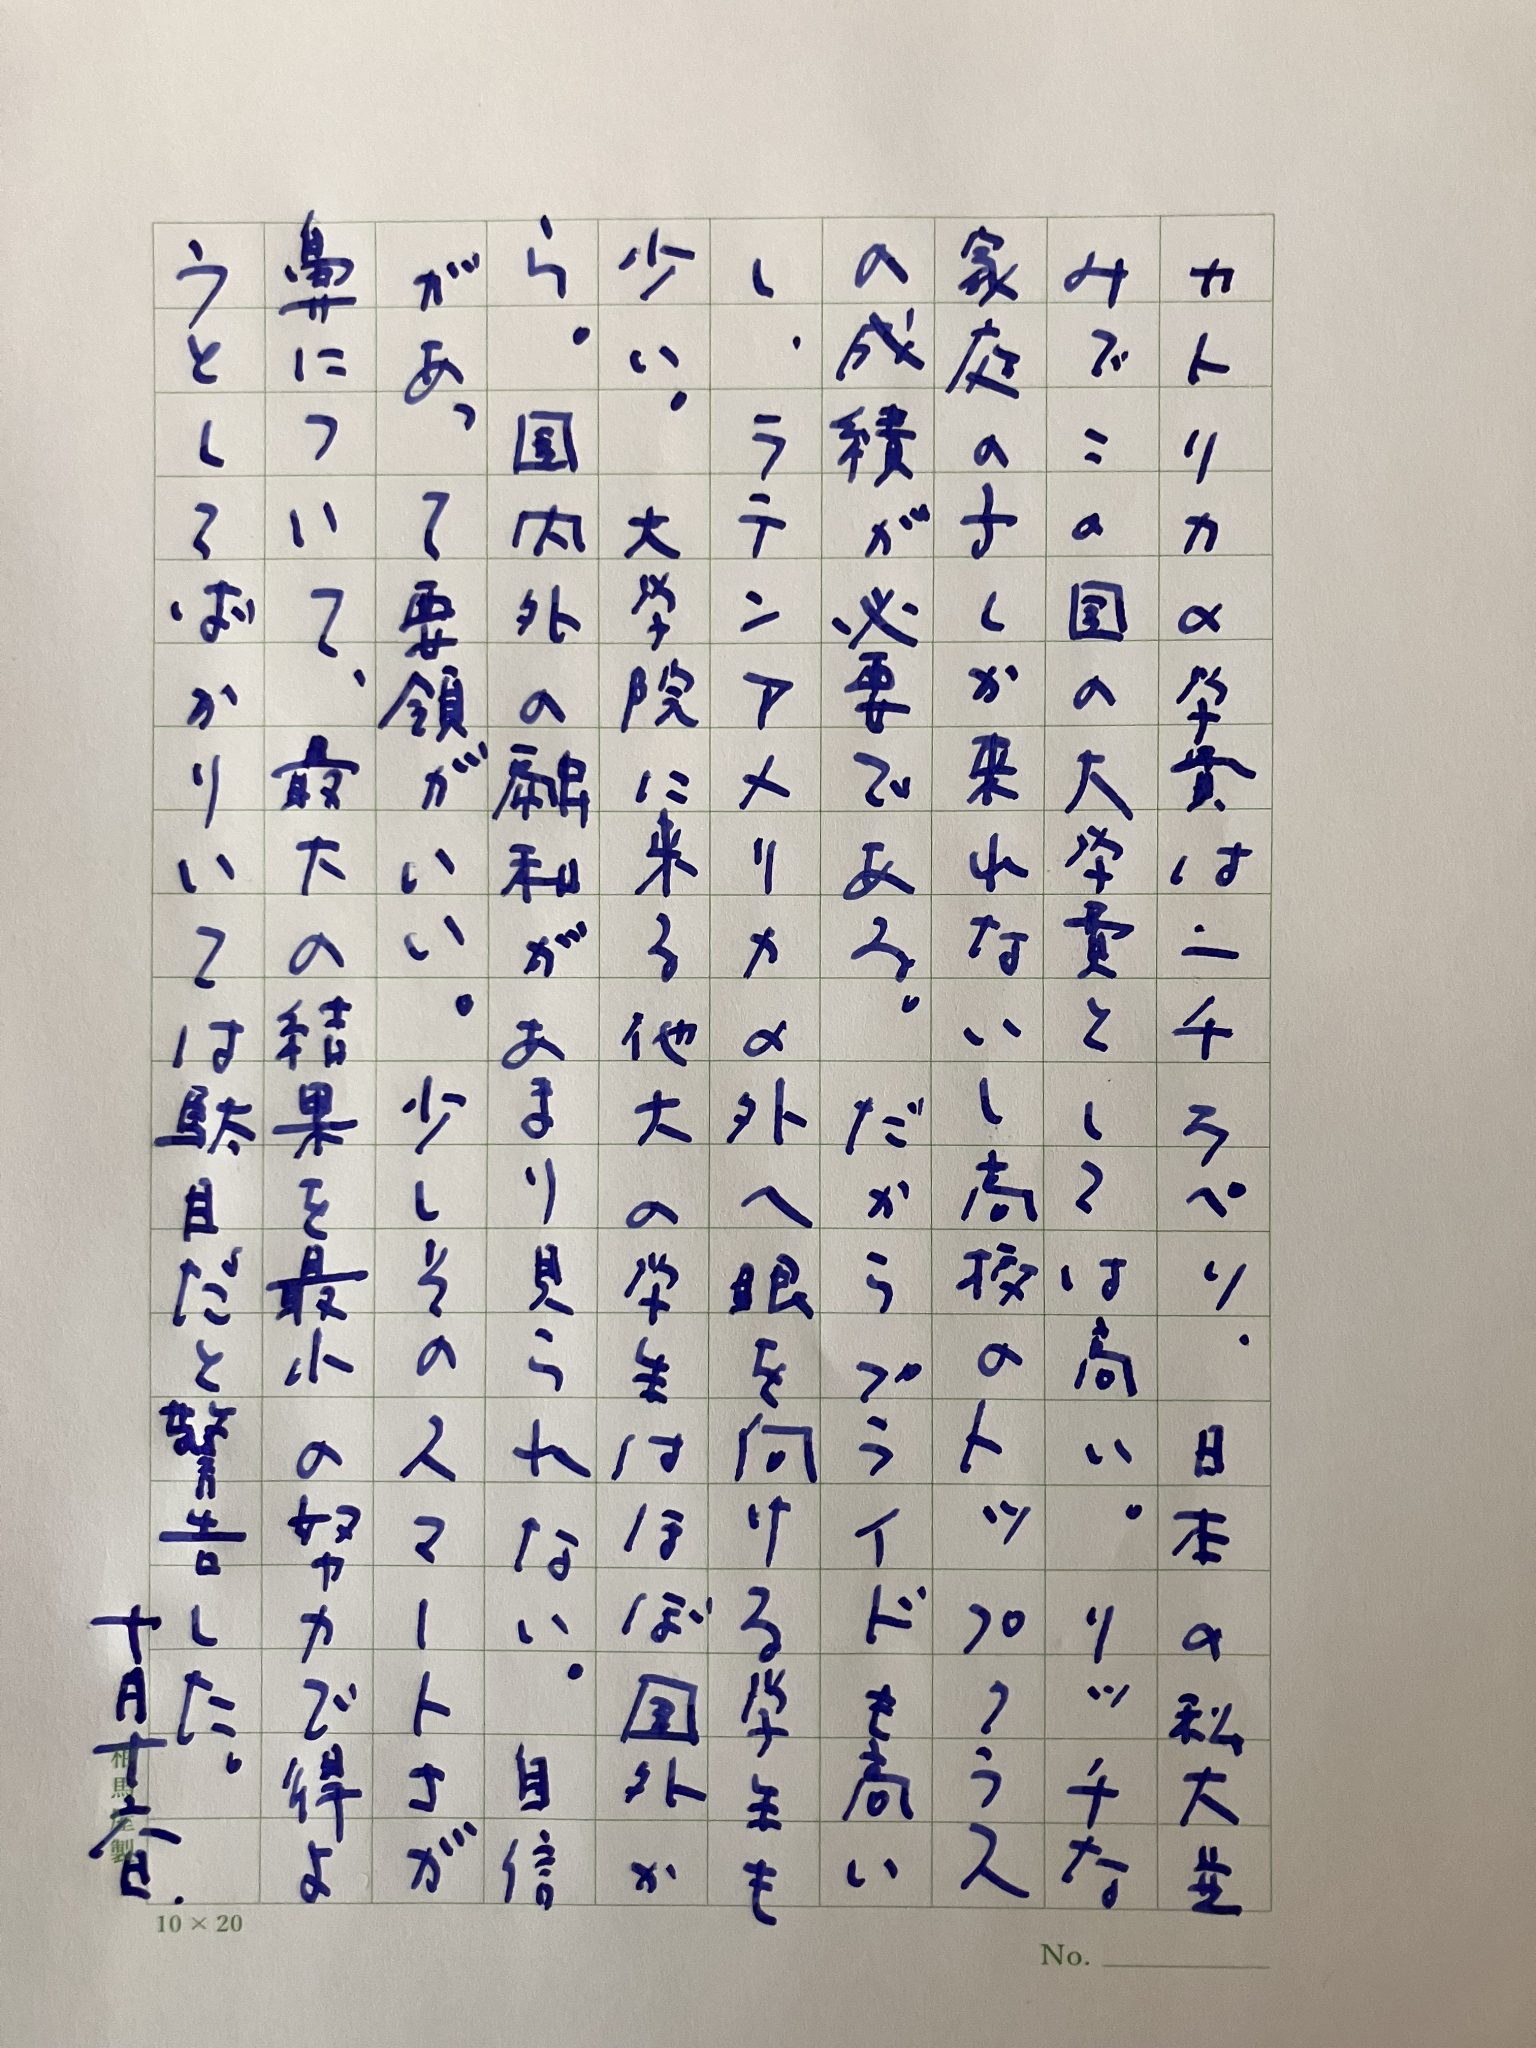 カトリカの学費は一千万ペソ、日本の私大並
みでこの国の大学費としては高い。リッチな
家庭の子しか来れないし高校のトップクラス
の成績が必要である。だからプライドも高い
し、ラテンアメリカの外へ眼を向ける学生も
少い。大学院に来る他大の学生はほぼ国外か
ら。国内外の融和があまり見られない。自信
があって要領がいい。少しそのスマートさが
鼻について、最大の結果を最小の努力で得よ
うとしてばかりいては駄目だと警告した。
十月十六日.
相馬屋製
10 × 20
No.